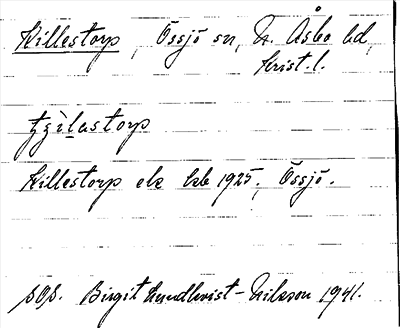 Killestorp, Össjö sn, N. Åsbo hd,
Krist. l.
Killestorp ek kb 1925, Össjö.
SOP. Birgit Lundkvist-Nilsson 1941.